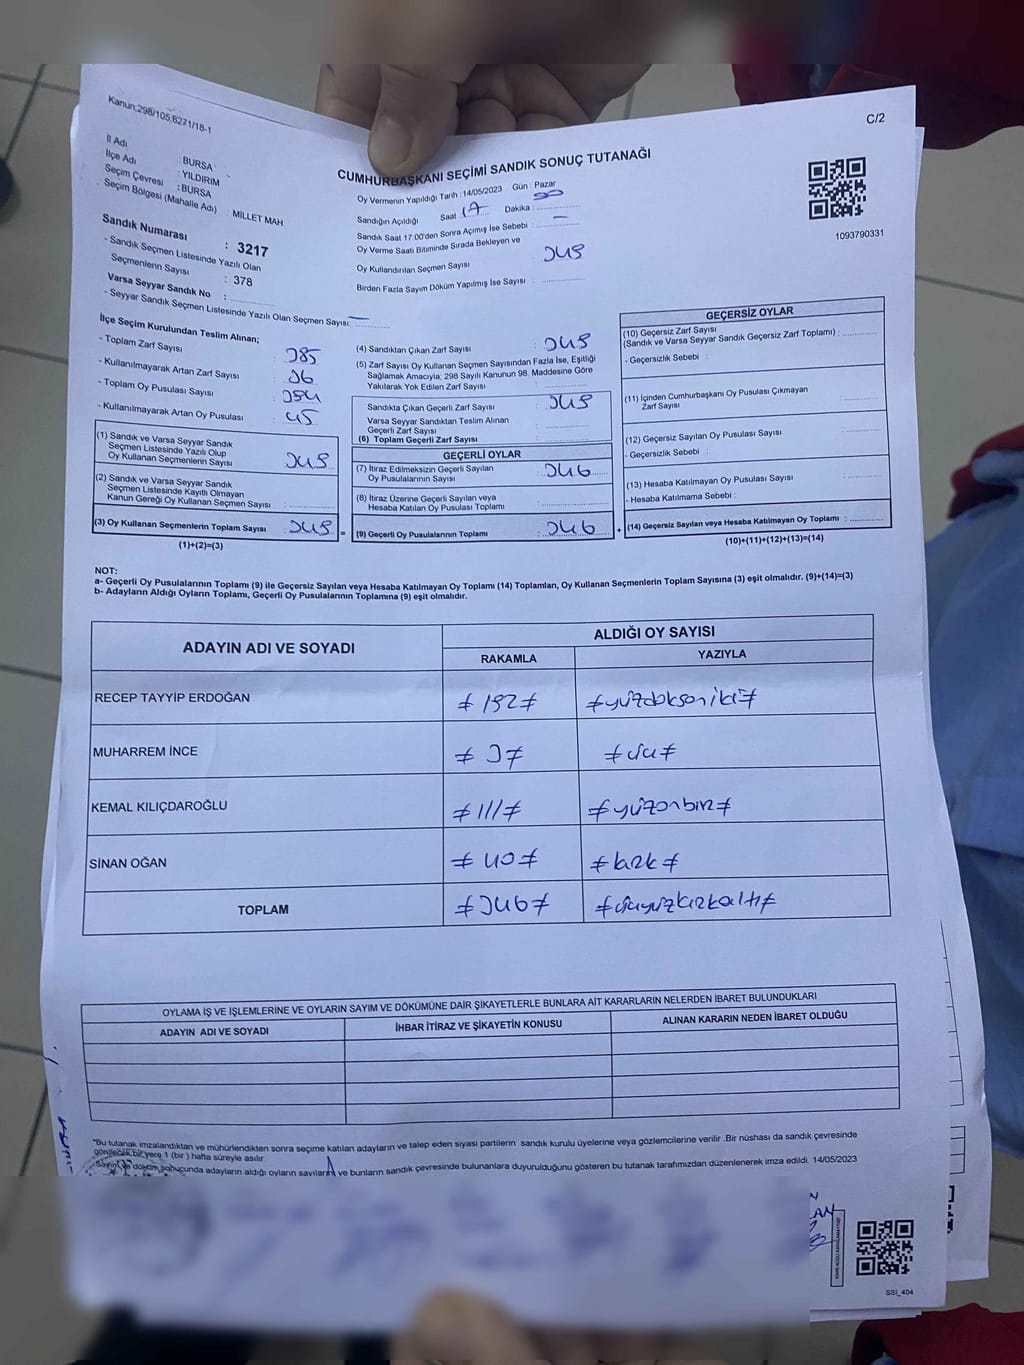 Kanun:298/105,6271/18-1
C/2
CUMHURBAŞKANI SEÇİMİ SANDIK SONUÇ TUTANAĞI
İl Adı : BURSA
İlçe Adı : YILDIRIM
Seçim Çevresi : BURSA
Seçim Bölgesi (Mahalle Adı) : MİLLET MAH
Oy Vermenin Yapıldığı Tarih : 14/05/2023 Gün : Pazar
Sandığın Açıldığı Saat 17 Dakika : 00
Sandık Saat 17:00'den Sonra Açılmış İse Sebebi : –
Oy Verme Saati Bitiminde Sırada Bekleyen ve
Oy Kullandırılan Seçmen Sayısı : 349
Birden Fazla Sayım Döküm Yapılmış İse Sayısı :
1093790331
Sandık Numarası : 3217
- Sandık Seçmen Listesinde Yazılı Olan
Seçmenlerin Sayısı : 378
Varsa Seyyar Sandık No :
- Seyyar Sandık Seçmen Listesinde Yazılı Olan Seçmen Sayısı: –
İlçe Seçim Kurulundan Teslim Alınan;
- Toplam Zarf Sayısı : 385
- Kullanılmayarak Artan Zarf Sayısı : 36
- Toplam Oy Pusulası Sayısı : 394
- Kullanılmayarak Artan Oy Pusulası : 45
(1) Sandık ve Varsa Seyyar Sandık
Seçmen Listesinde Yazılı Olup
Oy Kullanan Seçmenlerin Sayısı : 349
(2) Sandık ve Varsa Seyyar Sandık
Seçmen Listesinde Kayıtlı Olmayan
Kanun Gereği Oy Kullanan Seçmen Sayısı :
(3) Oy Kullanan Seçmenlerin Toplam Sayısı : 349 =
(1)+(2)=(3)
(4) Sandıktan Çıkan Zarf Sayısı : 349
(5) Zarf Sayısı Oy Kullanan Seçmen Sayısından Fazla İse, Eşitliği
Sağlamak Amacıyla; 298 Sayılı Kanunun 98. Maddesine Göre
Yakılarak Yok Edilen Zarf Sayısı :
Sandıkta Çıkan Geçerli Zarf Sayısı : 349
Varsa Seyyar Sandıktan Teslim Alınan
Geçerli Zarf Sayısı :
(6) Toplam Geçerli Zarf Sayısı :
GEÇERLİ OYLAR
(7) İtiraz Edilmeksizin Geçerli Sayılan
Oy Pusulalarının Sayısı : 346
(8) İtiraz Üzerine Geçerli Sayılan veya
Hesaba Katılan Oy Pusulası Toplamı :
(9) Geçerli Oy Pusulalarının Toplamı : 346 +
GEÇERSİZ OYLAR
(10) Geçersiz Zarf Sayısı
(Sandık ve Varsa Seyyar Sandık Geçersiz Zarf Toplamı) :
- Geçersizlik Sebebi :
(11) İçinden Cumhurbaşkanı Oy Pusulası Çıkmayan
Zarf Sayısı :
(12) Geçersiz Sayılan Oy Pusulası Sayısı :
- Geçersizlik Sebebi :
(13) Hesaba Katılmayan Oy Pusulası Sayısı :
- Hesaba Katılmama Sebebi :
(14) Geçersiz Sayılan veya Hesaba Katılmayan Oy Toplamı :
(10)+(11)+(12)+(13)=(14)
NOT:
a- Geçerli Oy Pusulalarının Toplamı (9) ile Geçersiz Sayılan veya Hesaba Katılmayan Oy Toplamı (14) Toplamları, Oy Kullanan Seçmenlerin Toplam Sayısına (3) eşit olmalıdır. (9)+(14)=(3)
b- Adayların Aldığı Oyların Toplamı, Geçerli Oy Pusulalarının Toplamına (9) eşit olmalıdır.
ADAYIN ADI VE SOYADI ALDIĞI OY SAYISI
RAKAMLA YAZIYLA
RECEP TAYYİP ERDOĞAN ≠192≠ ≠yüzdoksaniki≠
MUHARREM İNCE ≠3≠ ≠üç≠
KEMAL KILIÇDAROĞLU ≠111≠ ≠yüzonbir≠
SİNAN OĞAN ≠40≠ ≠kırk≠
TOPLAM ≠346≠ ≠üçyüzkırkaltı≠
OYLAMA İŞ VE İŞLEMLERİNE VE OYLARIN SAYIM VE DÖKÜMÜNE DAİR ŞİKAYETLERLE BUNLARA AİT KARARLARIN NELERDEN İBARET BULUNDUKLARI
ADAYIN ADI VE SOYADI İHBAR İTİRAZ VE ŞİKAYETİN KONUSU ALINAN KARARIN NEDEN İBARET OLDUĞU
*Bu tutanak imzalandıktan ve mühürlendikten sonra seçime katılan adayların ve talep eden siyasi partilerin sandık kurulu üyelerine veya gözlemcilerine verilir .Bir nüshası da sandık çevresinde
görülecek bir yere 1 (bir ) hafta süreyle asılır
Sayım ve döküm sonucunda adayların aldığı oyların sayılarını ve bunların sandık çevresinde bulunanlara duyurulduğunu gösteren bu tutanak tarafımızdan düzenlenerek imza edildi. 14/05/2023
SSI_404